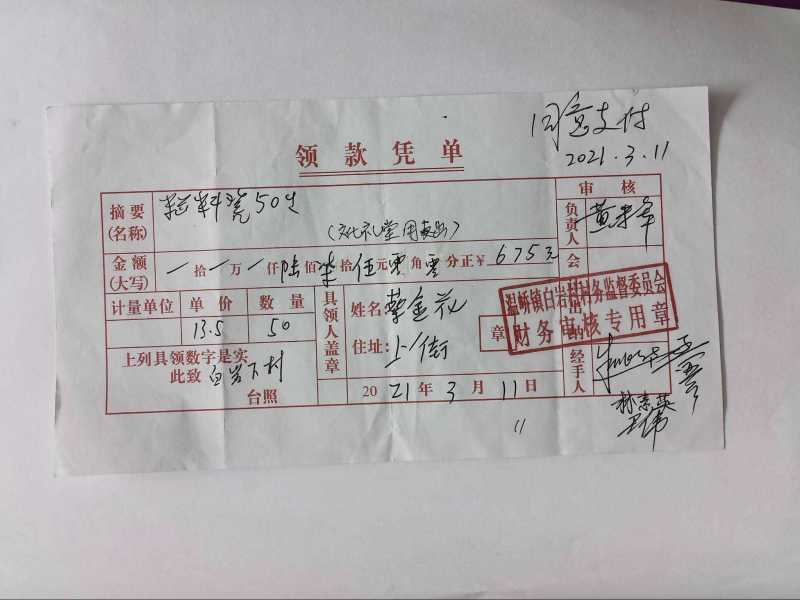 同意支付
2021.3.11
领款凭单
摘要(名称) 塑料凳50只
(文化礼堂用)
审核
负责人
金额(大写) 拾 万 仟陆佰柒拾伍元零角零分正¥ 675元
会
计量单位 单价 数量
13.5 50
具领人盖章
姓名
住址: 上街
章
温峤镇白岩下村村务监督委员会
财务审核专用章
上列具领数字是实
此致 白岩下村
台照
2021年3月11日
经手人
11